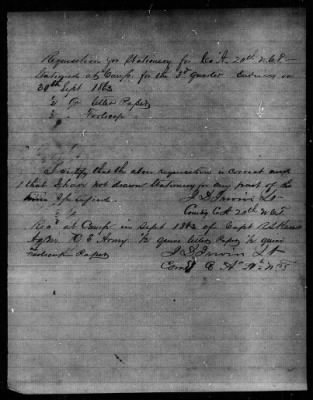 Requisition for Stationery for Co A. 20th N.C.T.
Stationed at Camp. for the 3d Quarter Ending on
30th Sept 1863
½ Qr Letter Paper
½ " Foolscap "
I certify that the above requisition is correct and
that I have not drawn Stationery for any part of the
time Specified.
J. D. Irvin Lt
Comdg Co A 20th N.C.T.
Recd at Camp in Sept 1863 of Capt
C. S. Army. ½ quire Letter Paper ½ quire
Foolscap Paper
J. D. Irvin Lt
Comdg Co A